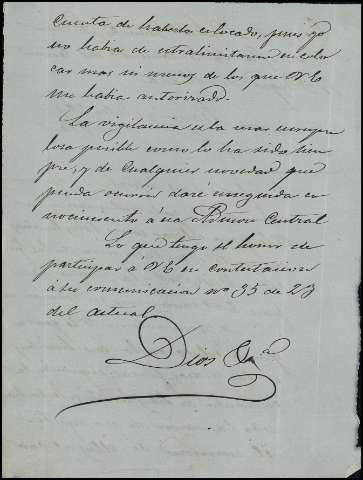 cuenta de haberlo colocado, pues yo
no habia de extralimitarme en colo
car mas ni menos de los que VE
me habia autorizado.
La vigilancia es la mas escrupu
losa posible como lo ha sido siem
pre, y de cualquier novedad que
pueda ocurrir daré enseguida co
nocimiento á esa Central
Lo que tengo el honor de
participar á VE en contestacion
á su comunicacion nº 35 de 23
del actual
Dios &a